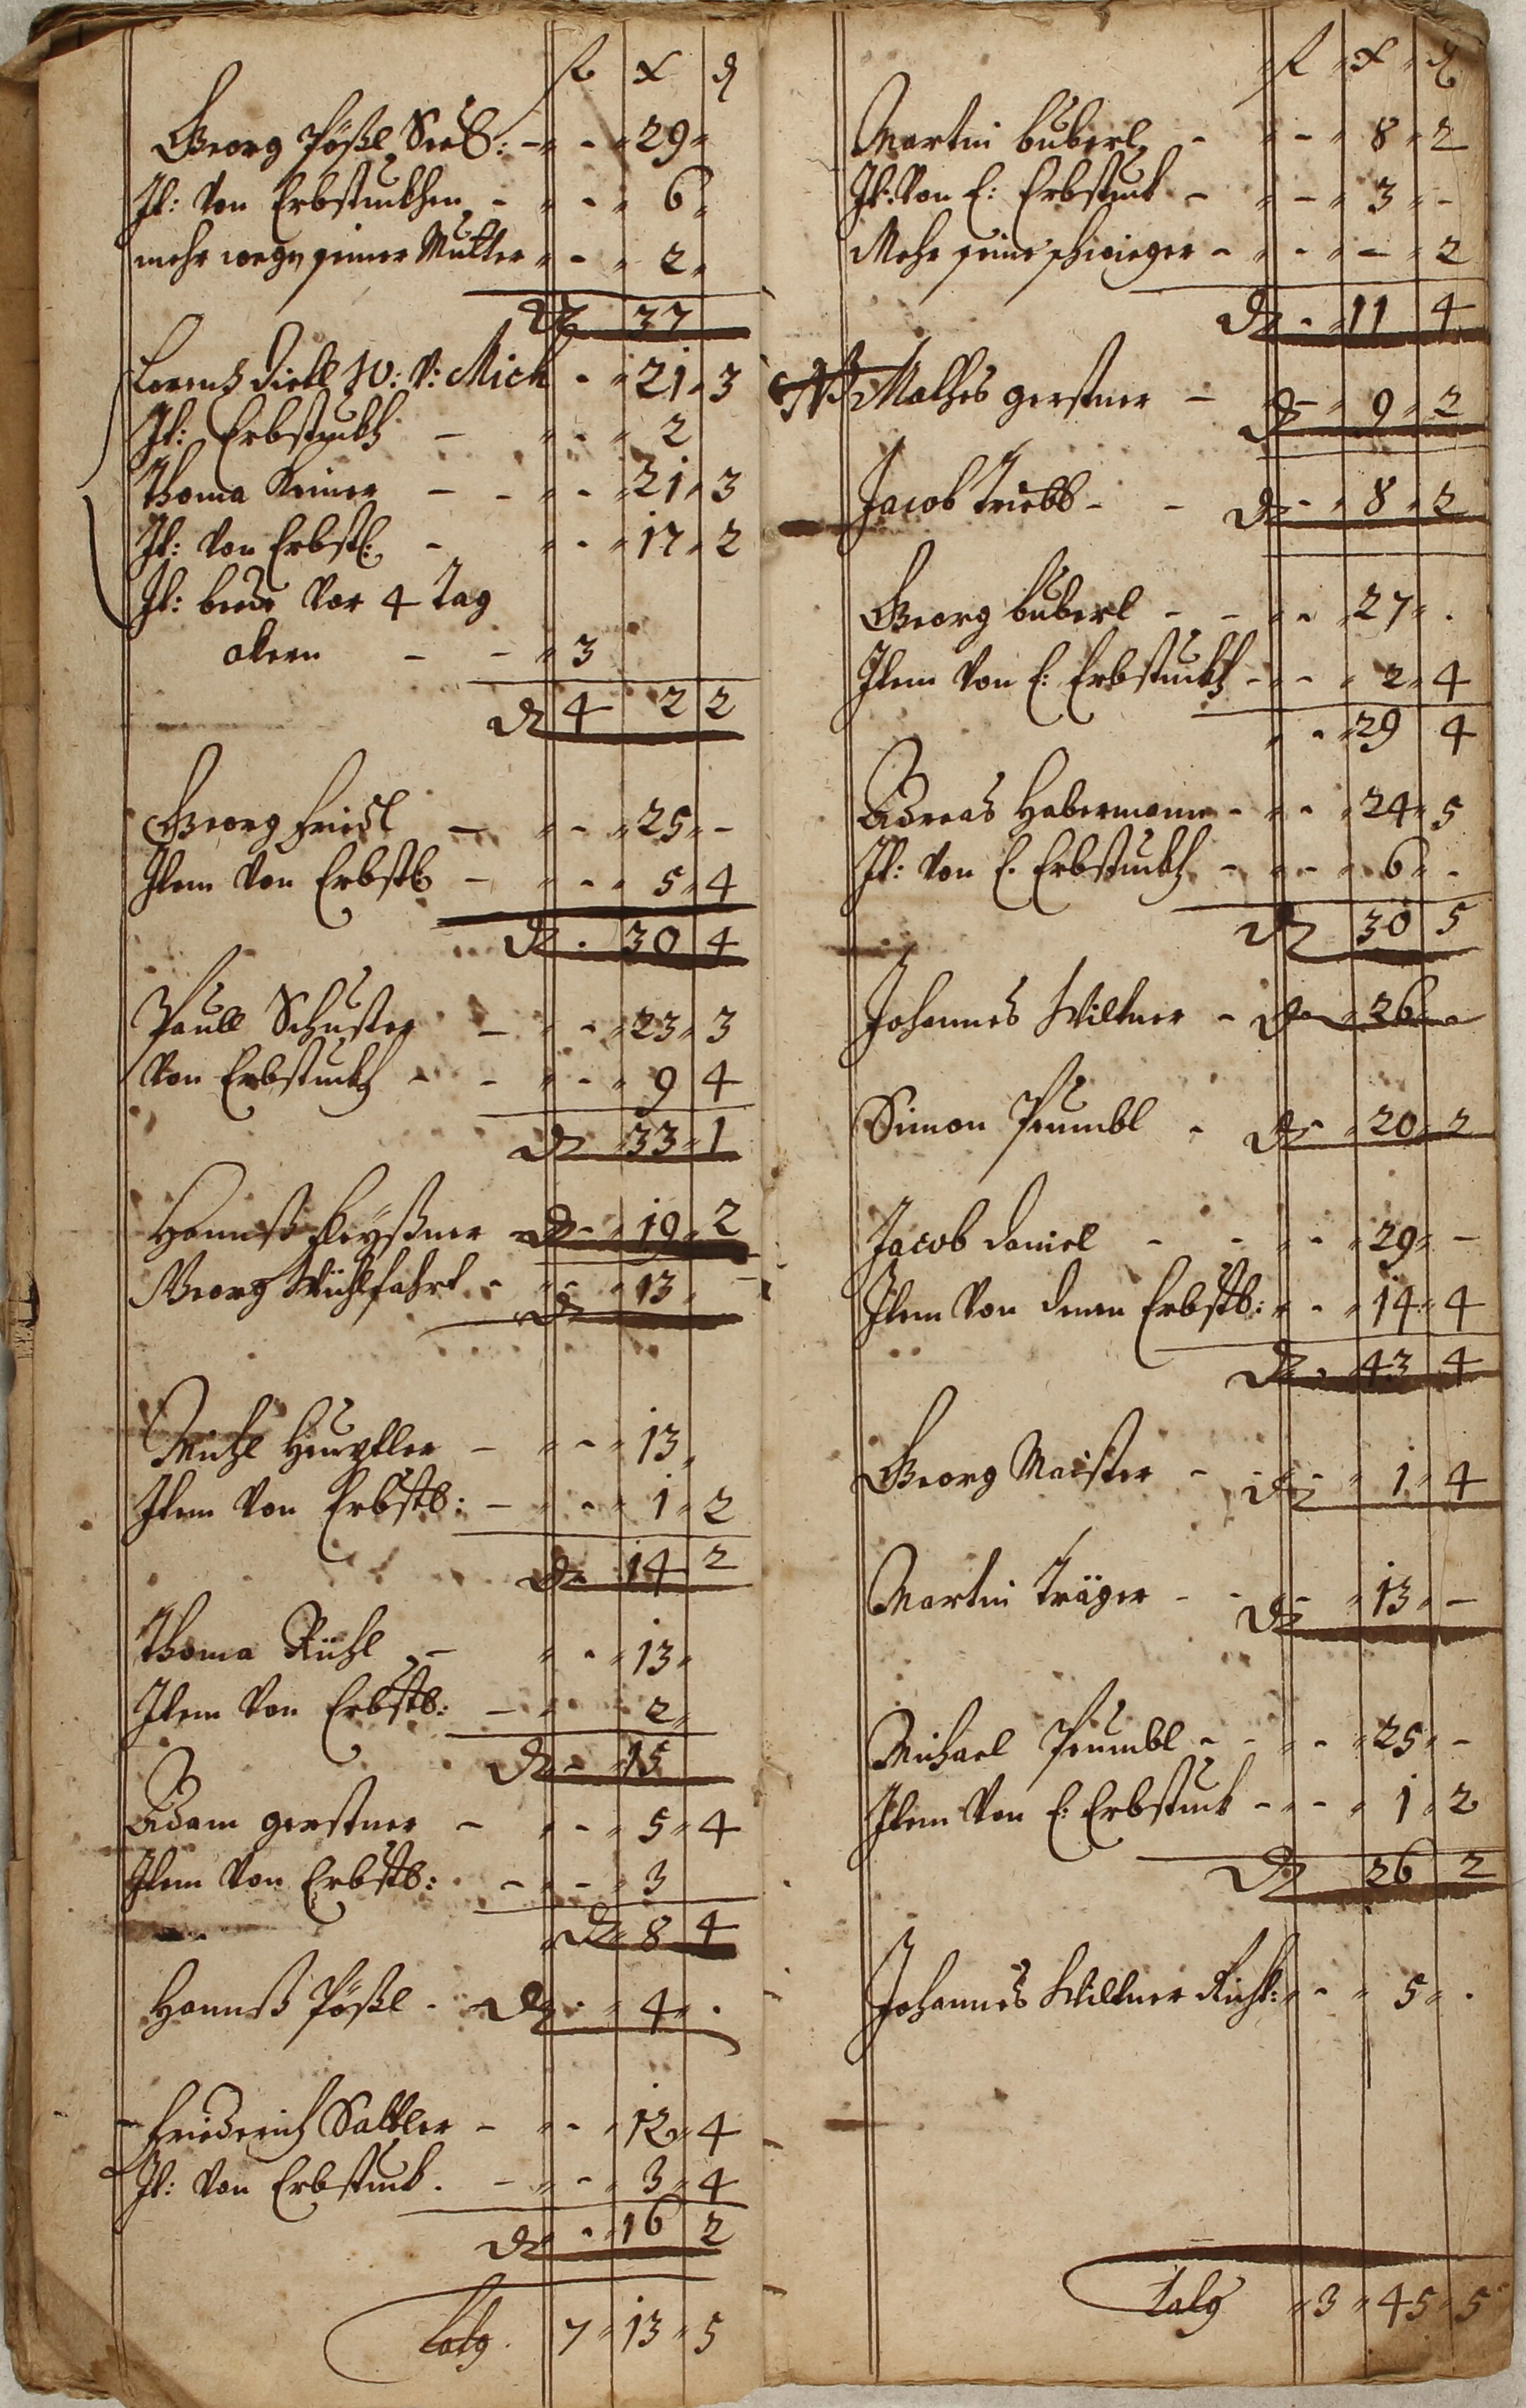 fl x ₰
Georg Pößl Seel: - - 29
It: von Erbstuckhen - - 6
mehr wegn seiner Mutter - 2
dt 37
Lorenz Dietl W: V: Mich - 21 3
It: Erbstuckh - - 2
Thoma Keiner - - - 21 3
It: von Erbst: - - 17 2
It: beede vor 4 Tag
akern - - 3
dt 4 2 2
Georg Friedl - - 25 -
Item von Erbstk - - 5 4
dt . 30 4
Paull Schuster - - 23 3
Von Erbstuckh - - - 9 4
dt 33 1
Hannß Leÿßner dt - 19 2
Georg Wichlfahrt - - 13 -
dt
Michl Heuptler - - 13
Item von Erbstk: - - 1 2
dt 14 2
Thoma Richl - - 13
Item von Erbstk: - 2
dt - 15
Adam gerstner - - 5 4
Item von Erbstk: - - 3
dt 8 4
Hannß Pößl - dt - 4 .
Friederich Sattler - - 12 4
It: von Erbstuck . - - 3 4
dt - 16 2
Latg . 7 13 5
fl x ₰
Martin Buberl - - 8 2
It: von E: Erbstuck - - 3 -
Mehr seine schwieger - - - 2
dt - 11 4
NB Mathes gerstner - dt - 9 2
Jacob Triebl - - dt - 8 2
Georg Buberl - - - 27 .
Item von E: Erbstuckh - - 2 4
- 29 4
Adreas Habermann - - 24 5
It: von E. Erbstuckh - - 6 -
dt 30 5
Johannes Wiltner - dt 26
Simon Prumbl - dt - 20 2
Jacob Daniel - - - 29 -
Item von denen Erbstk: - 14 4
dt - 43 4
Georg Maister - - dt - 1 4
Martin Träger - - dt - 13 -
Michael Prumbl - - - 25 -
Item von E: Erbstuck - - 1 2
dt 26 2
Johannes Wiltner Richt: - 5 .
Latg 3 45 5